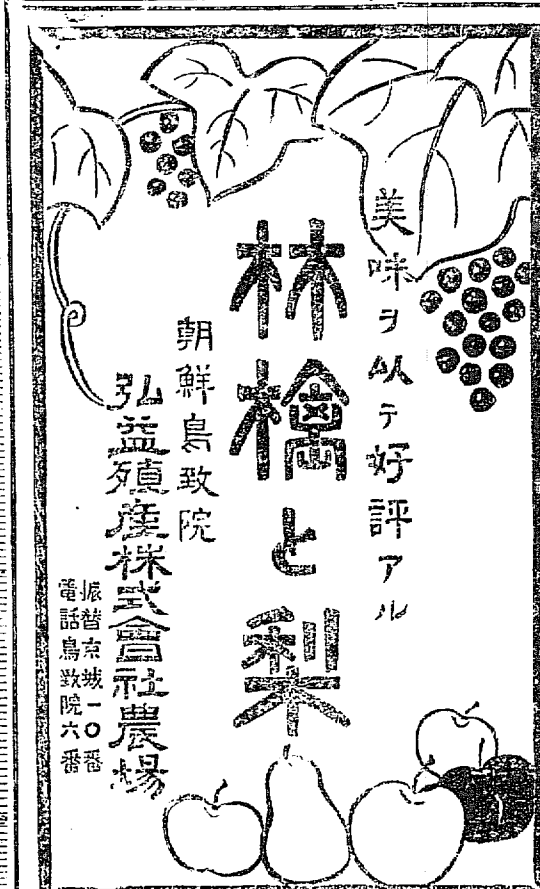 美味ヲ以テ好評アル
林檎と梨
朝鮮鳥致院
弘益殖産株式會社農場
振替京城一〇番
電話鳥致院六番